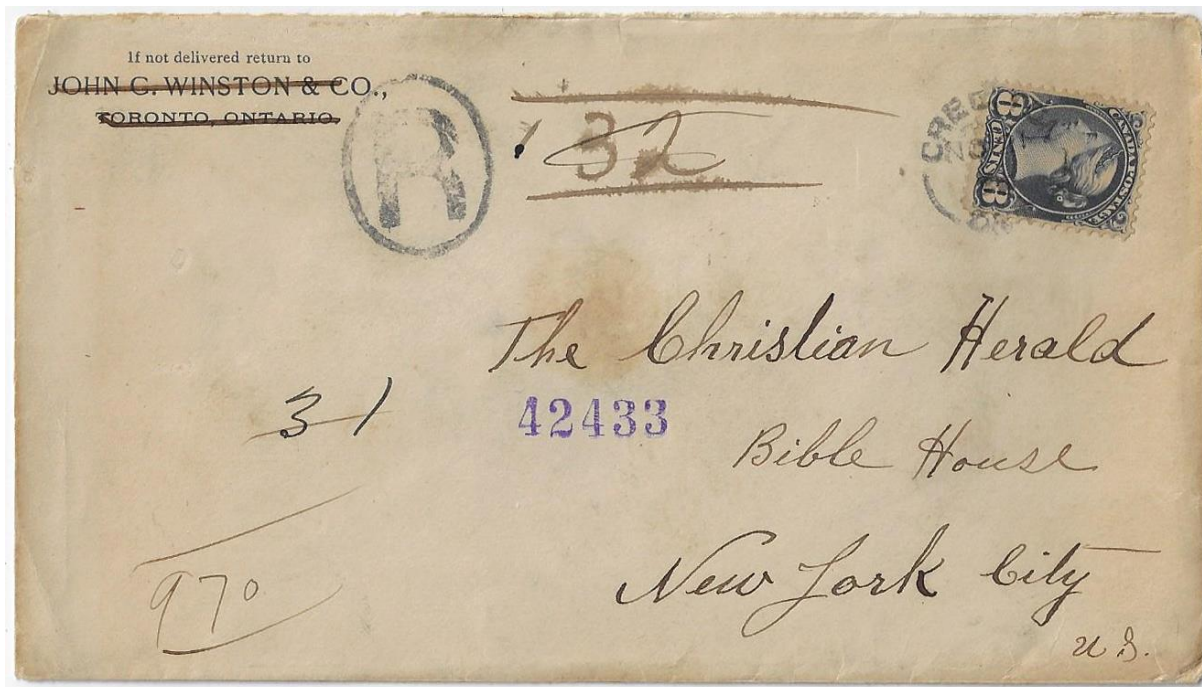 If not delivered return to
JOHN C. WINSTON & CO.,
TORONTO, ONTARIO.
R
32
8 CENTS 8
CANADA POSTAGE
The Christian Herald
31
42433
Bible House
970
New York City
U.S.